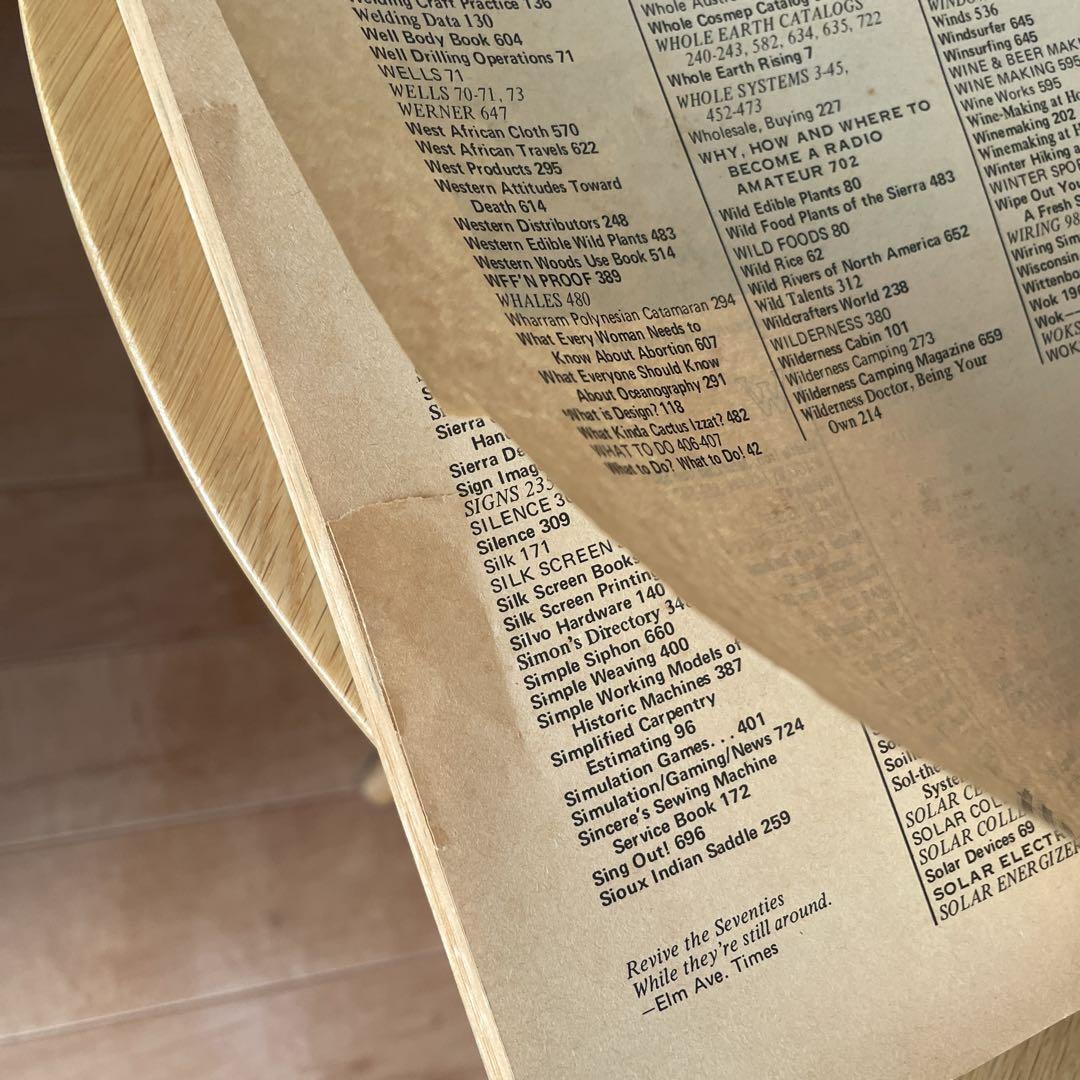 Welding Craft Practice 136
Welding Data 130
Well Body Book 604
Well Drilling Operations 71
WELLS 71
WELLS 70-71, 73
WERNER 647
West African Cloth 570
West African Travels 622
West Products 295
Western Attitudes Toward
Death 614
Western Distributors 248
Western Edible Wild Plants 483
Western Woods Use Book 514
WFF'N PROOF 389
WHALES 480
Wharram Polynesian Catamaran 294
What Every Woman Needs to
Know About Abortion 607
What Everyone Should Know
About Oceanography 291
What is Design? 118
What Kinda Cactus Izzat? 482
WHAT TO DO 406-407
What to Do? What to Do! 42
Whole
Whole Cosmep Catalog
WHOLE EARTH CATALOGS
240-243, 582, 634, 635, 722
Whole Earth Rising 7
WHOLE SYSTEMS 3-45,
452-473
Wholesale, Buying 227
WHY, HOW AND WHERE TO
BECOME A RADIO
AMATEUR 702
Wild Edible Plants 80
Wild Food Plants of the Sierra 483
WILD FOODS 80
Wild Rice 62
Wild Rivers of North America 652
Wild Talents 312
Wildcrafters World 238
WILDERNESS 380
Wilderness Cabin 101
Wilderness Camping 273
Wilderness Camping Magazine 659
Wilderness Doctor, Being Your
Own 214
Winds 536
Windsurfer 645
Winsurfing 645
WINE & BEER
WINE MAKING 595
Wine Works 595
Wine-Making at
Winemaking 202
Winemaking at
Winter Hiking
WINTER
Wipe Out
A Fresh
WIRING 98
Wiring
Wisconsin
Wok
Wok—
Sierra
Sierra
Sign
SIGNS
SILENCE
Silence 309
Silk 171
SILK SCREEN
Silk Screen Books
Silk Screen Printing
Silvo Hardware 140
Simon's Directory
Simple Siphon 660
Simple Weaving 400
Simple Working Models of
Historic Machines 387
Simplified Carpentry
Estimating 96
Simulation Games. . . 401
Simulation/Gaming/News 724
Sincere's Sewing Machine
Service Book 172
Sing Out! 696
Sioux Indian Saddle 259
Revive the Seventies
While they're still around.
—Elm Ave. Times
SOLAR
SOLAR
SOLAR
Solar Devices 69
SOLAR
SOLAR